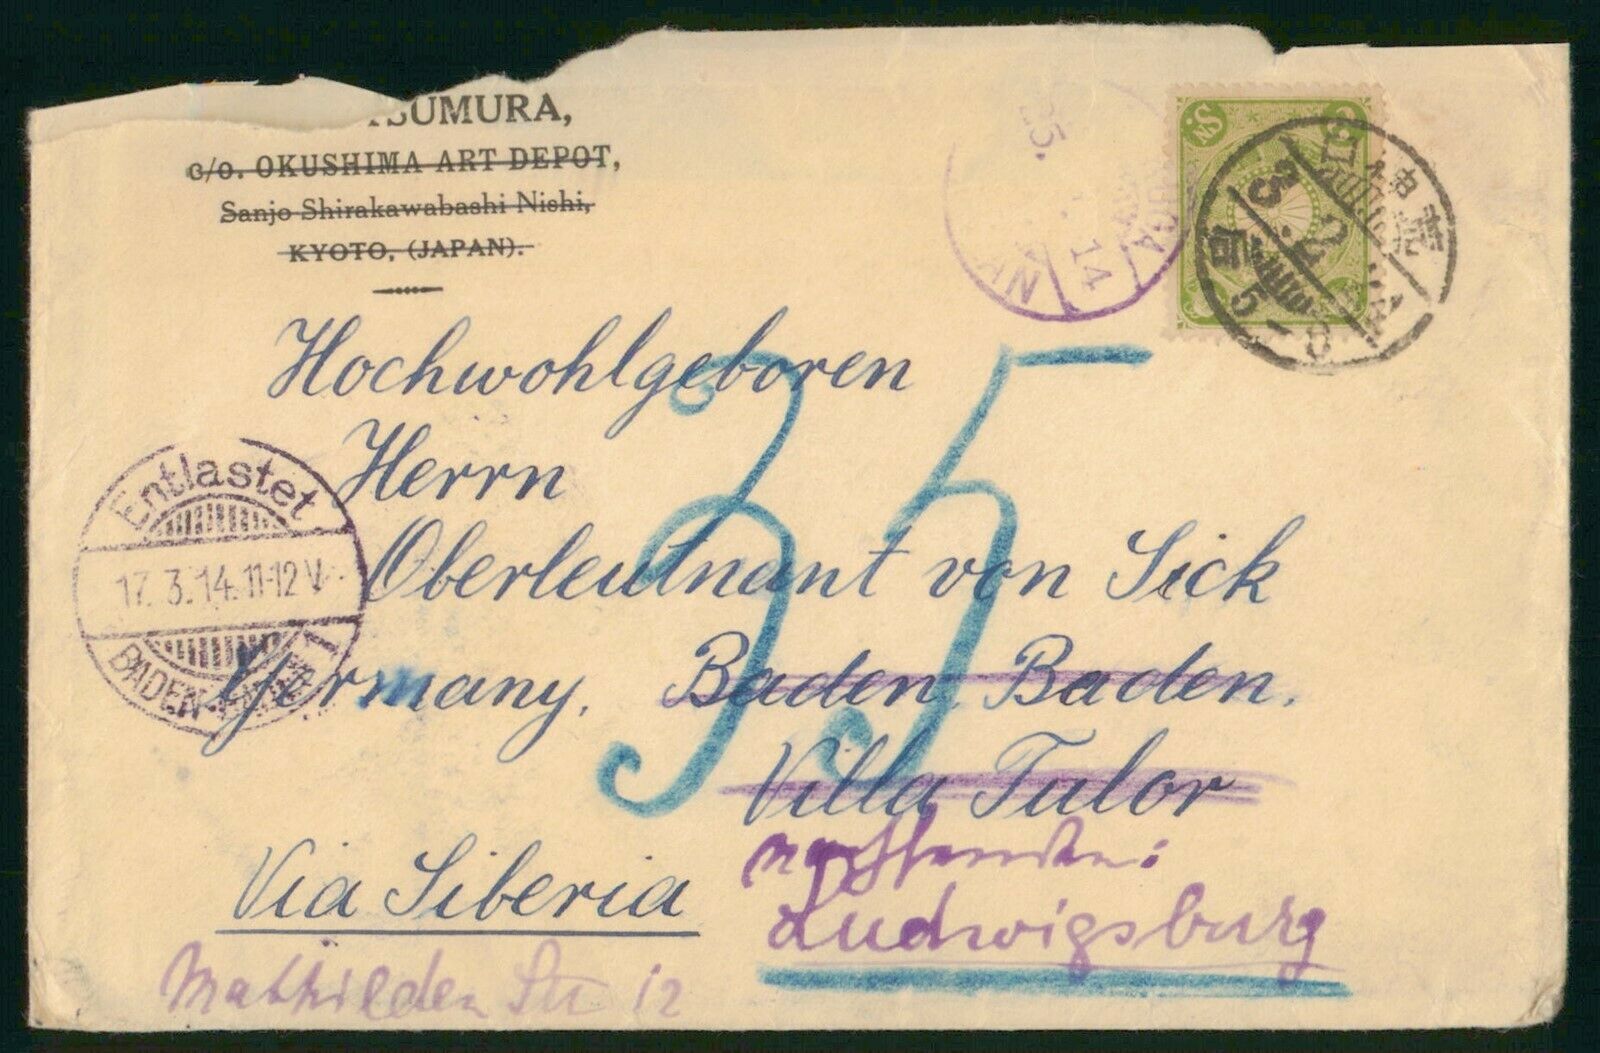 TSUMURA,
c/o. OKUSHIMA ART DEPOT,
Sanjo Shirakawabashi Nishi,
KYOTO, (JAPAN).
25.
14
3. 2. 3
5-8
Hochwohlgeboren
Herrn
Oberleutnant von Sick
Germany, Baden-Baden.
Villa Tulor
Via Siberia
35
Entlastet
17.3.14.11-12V
BADEN-
Ludwigsburg
Mathilden Str 12